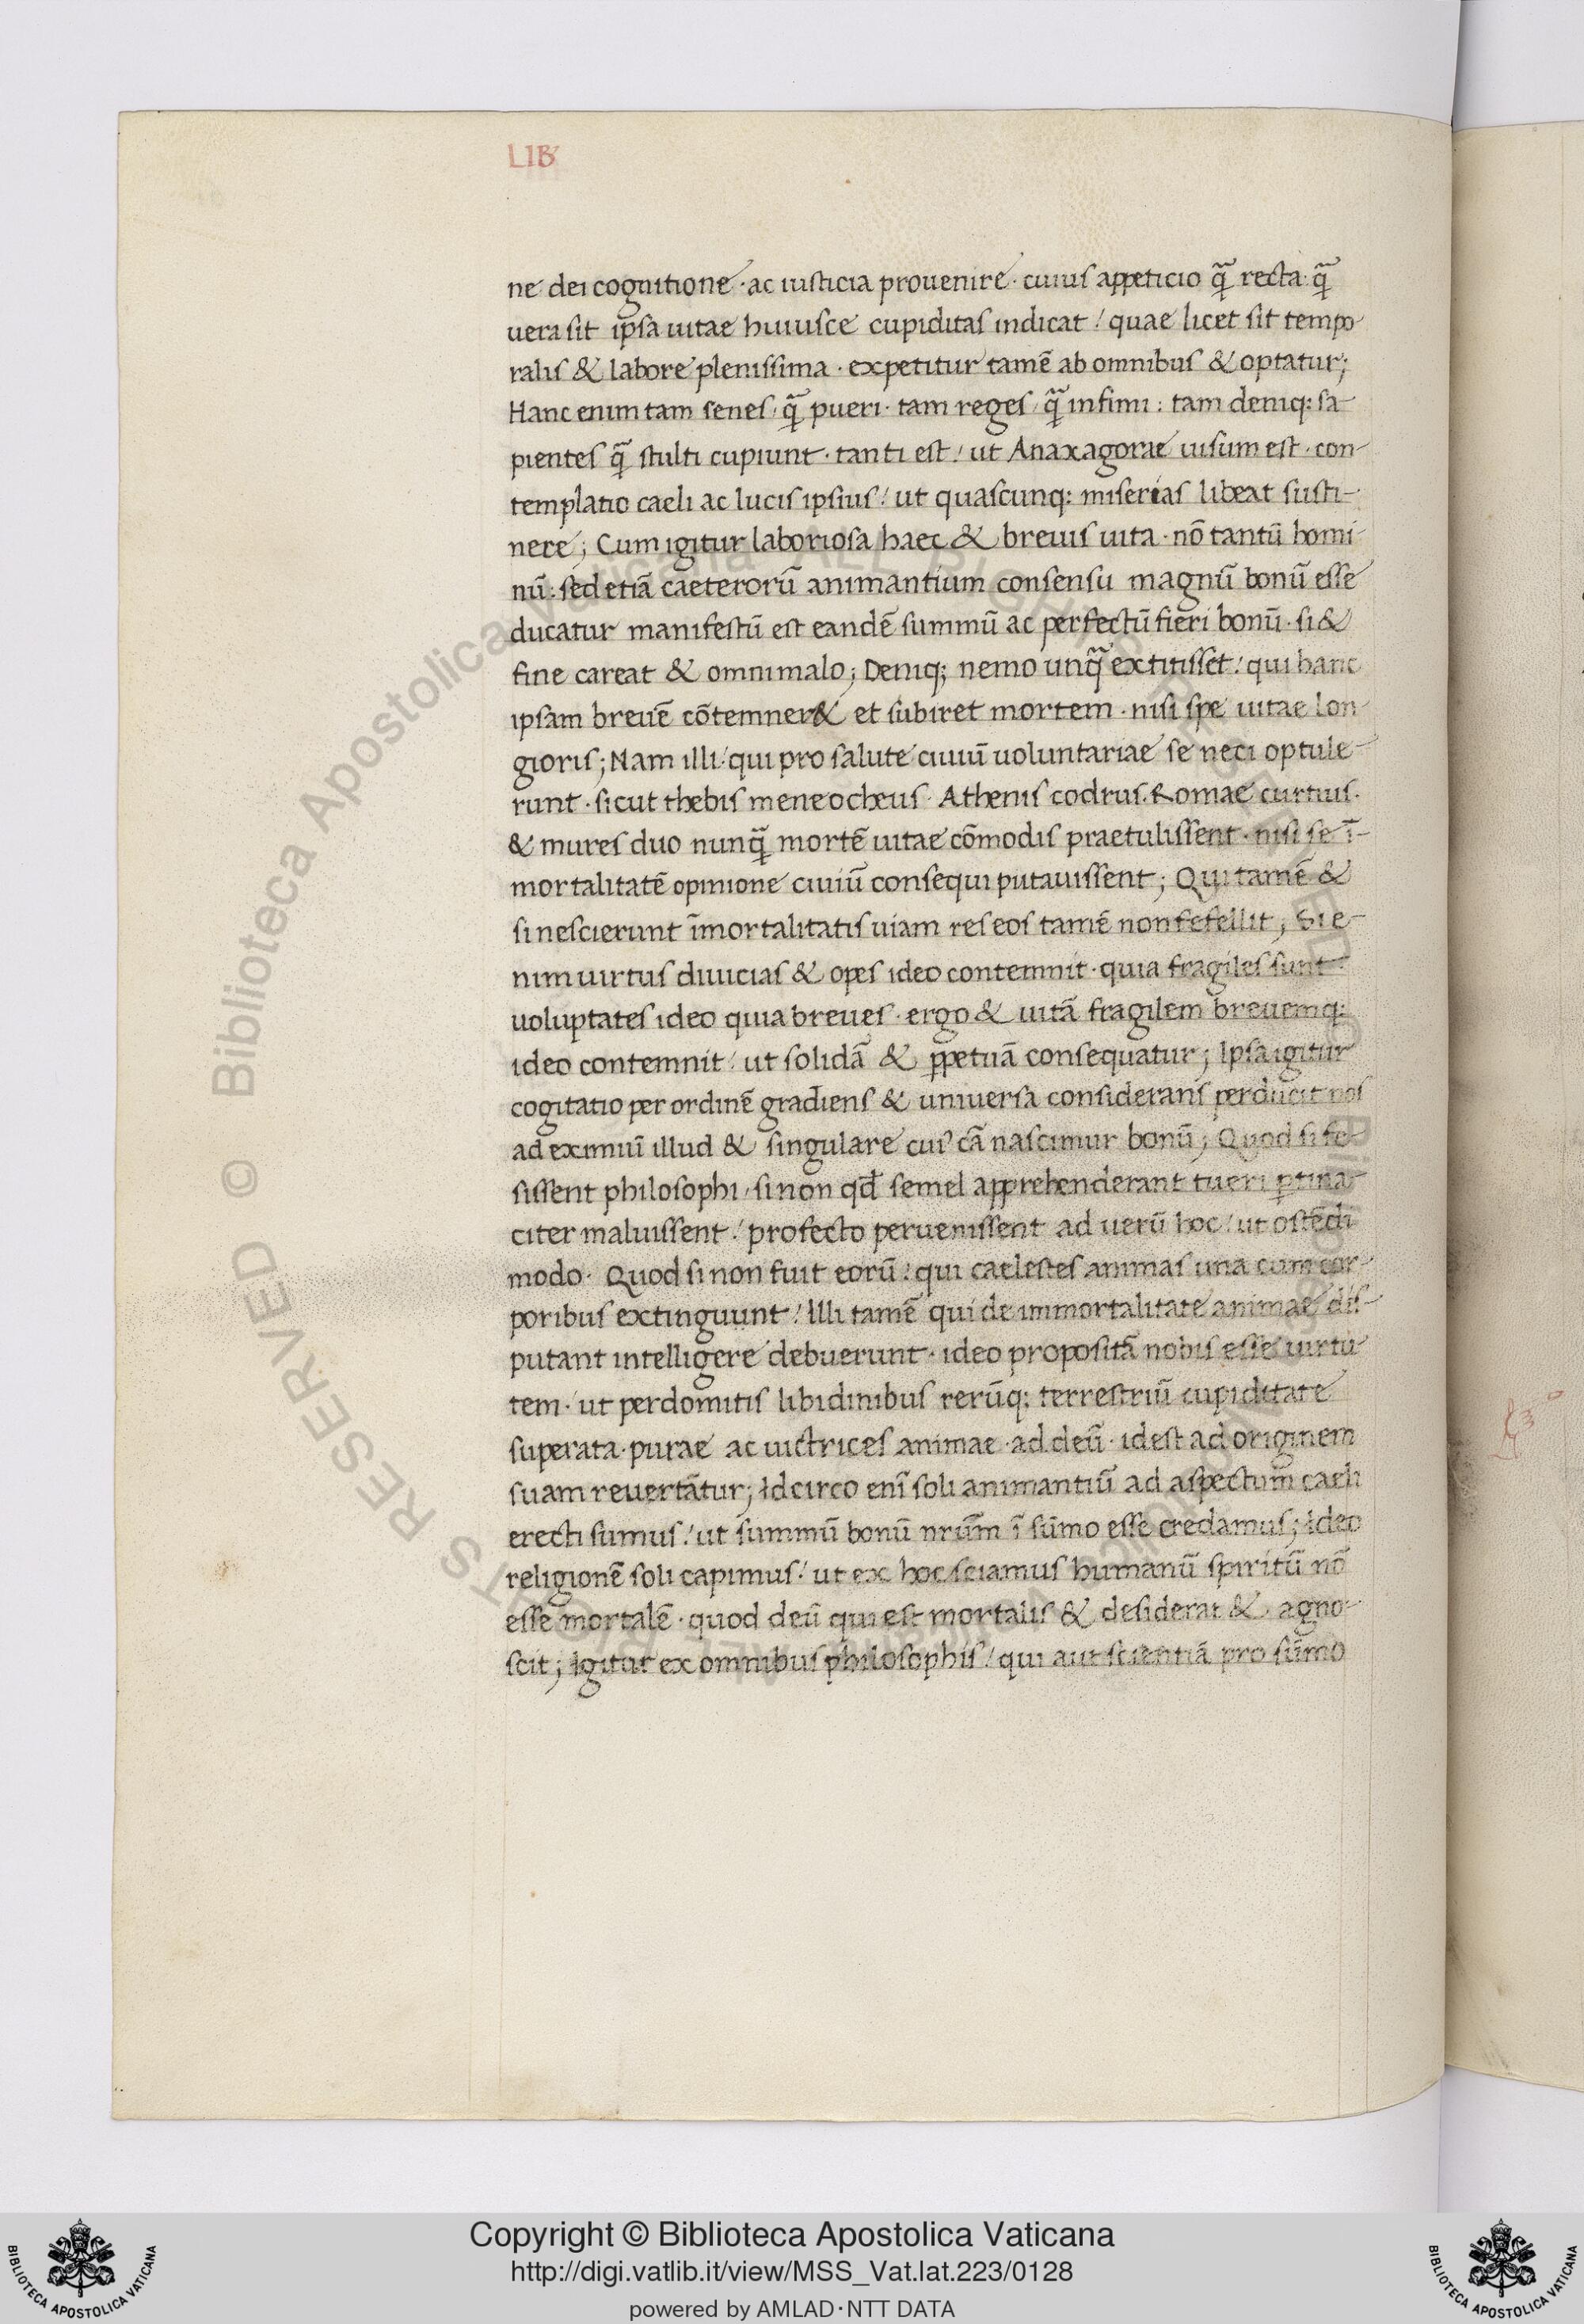 LIB
ne dei cognitione · ac iusticia prouenire · cuius appeticio q̃ recta q̃
uera sit ipsa uitae huiusce cupiditas indicat / quae licet sit tempo
ralis & labore plenissima · expetitur tamē ab omnibus & optatur;
Hanc enim tam senes / q̃ pueri · tam reges / q̃ infimi : tam deniq: sa
pientes q̃ stulti cupiunt · tanti est / ut Anaxagorae uisum est · con
templatio caeli ac lucis ipsius / ut quascunq: miserias libeat susti
nere; Cum igitur laboriosa haec & breuis uita · nō tantū homi
nū · sed etiā caeterorū animantium consensu magnū bonū esse
ducatur manifestū est eandē summū ac perfectū fieri bonū · si &
fine careat & omni malo; Deniq; nemo unq̃ extitisset / qui hanc
ipsam breuē cōtemner& et subiret mortem · nisi spe uitae lon
gioris; Nam illi / qui pro salute ciuiū uoluntariae se neci optule
runt · sicut thebis meneocheus · Athenis codrus. Romae curtius.
& mures duo nunq̃ mortē uitae cōmodis praetulissent · nisi se ī
mortalitatē opinione ciuiū consequi putauissent; Qui tamē &
si nescierunt īmortalitatis uiam res eos tamē non fefellit; Si e
nim uirtus diuicias & opes ideo contemnit · quia fragiles sunt
uoluptates ideo quia breues · ergo & uitā fragilem breuemq:
ideo contemnit / ut solidā & ꝑpetuā consequatur; Ipsa igitur
cogitatio per ordinē gradiens & uniuersa considerans perducit nos
ad eximiū illud & singulare cui' cā nascimur bonū; Quod si fe
sissent philosophi / si non qđ semel apprehenderant tueri ꝑtina
citer maluissent / profecto peruenissent ad uerū hoc / ut ostēdi
modo · Quod si non fuit eorū / qui caelestes animas una cum cor
poribus extinguunt / Illi tamē qui de immortalitate animae dis
putant intelligere debuerunt · ideo propositā nobis esse uirtu
tem · ut perdomitis libidinibus rerūq: terrestriū cupiditate
superata · purae ac uictrices animae · ad deū · id est ad originem
suam reuertātur; Idcirco enī soli animantiū ad aspectum caeli
erecti sumus / ut summū bonū nr̄um ī sūmo esse credamus; Ideo
religionē soli capimus / ut ex hoc sciamus humanū spiritū nō
esse mortalē · quod deū qui est mortalis & desiderat & agno
scit; Igitur ex omnibus philosophis / qui aut scientiā pro sūmo
© Biblioteca Apostolica Vaticana ALL RIGHTS RESERVED
Copyright © Biblioteca Apostolica Vaticana
http://digi.vatlib.it/view/MSS_Vat.lat.223/0128
powered by AMLAD·NTT DATA
BIBLIOTECA APOSTOLICA VATICANA
BIBLIOTECA APOSTOLICA VATICANA